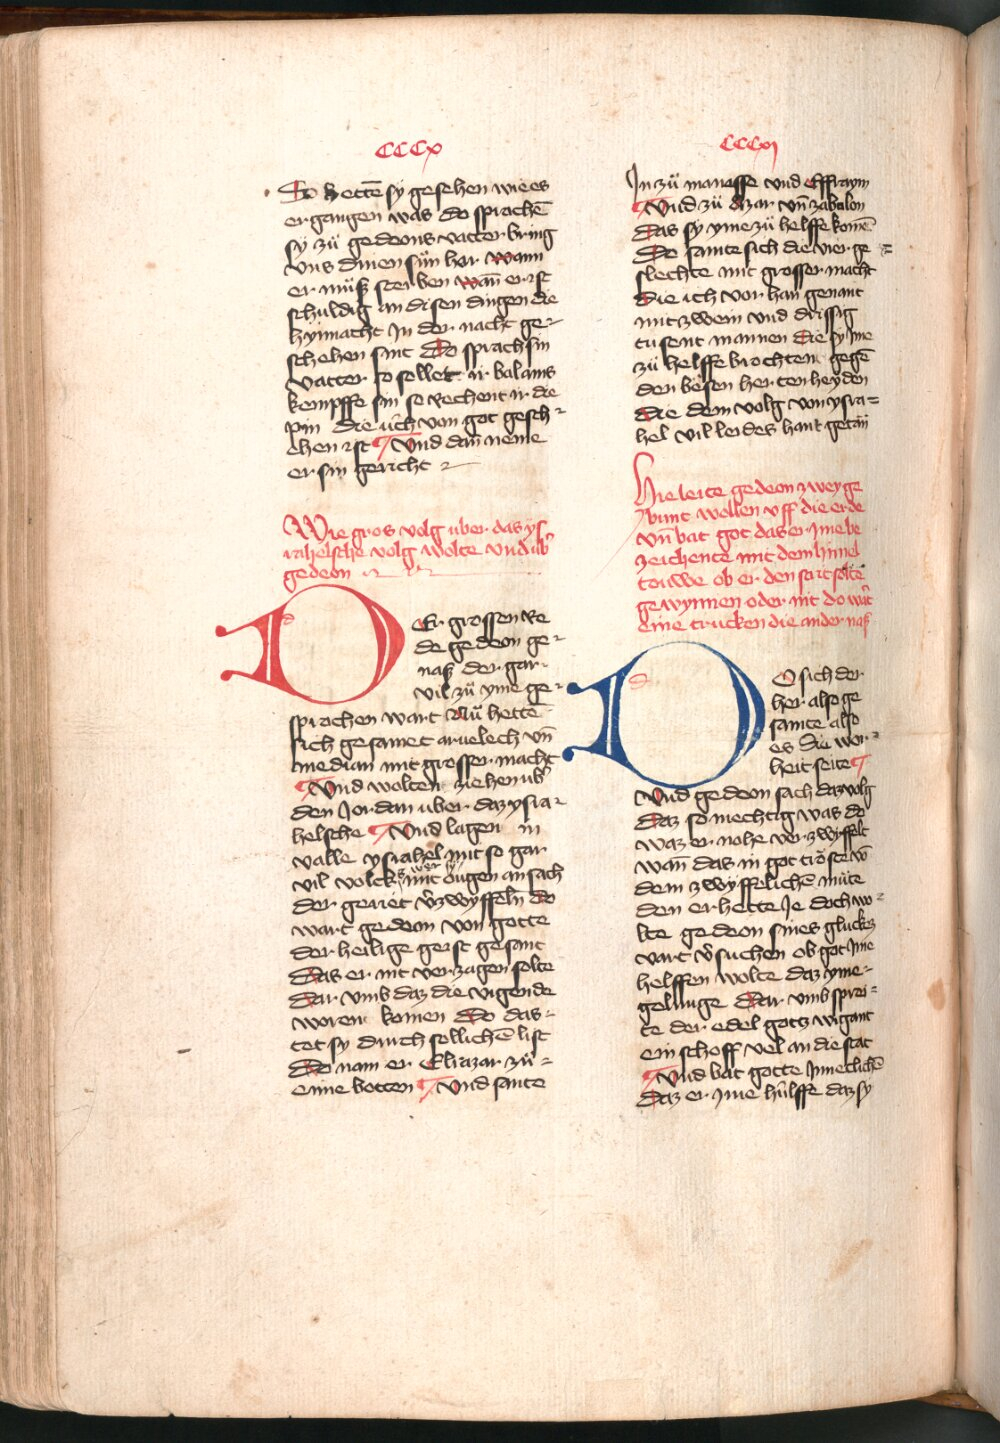 CCCx
So hettē sy gesehen wie es
ergangen was do sprachē
sy zü gedeons vatter bring
vns dinen sün her wann
er müsz sterben wañ er ist
schuldig an disen dingen die
hynnacht in der nacht ge-
schehen sint Do sprach sin
vatter so sollet ir balams
kempffe sin so rechent ir die
pin die üch von got gesch-
ehen ist ¶ Vnd dañ neme
er sin gericht
Wie gros volg über das ys
rahelsche volg wolte vnd üb̾
gedeon
DEr grossen re
de gedeon ge-
nasz der gar
vil zü yme ge-
sprochen wart Nü hette
sich gesamet amelech vñ
median mit grosser macht
¶ Vnd wolten ziehen üb̾
den Jordan über daz ysra-
helsche ¶ Vnd lagen in
valle ysrahel mit so gar
vil volcks wer sy mit ougen an sach
der geriet v̾zwyffeln do
wart gedeon von gotte
der heilige geist gesant
Das er nit verzagen solte
Dar vmb daz die vigende
woren komen Do das-
tet sy durch sollichē list
Do nam er Eliazar zü-
eime botten ¶ Vnd sante
CCCxj
In zü manasse vnd Effraym
¶ Vnd zü Azar vñ zabalon
Das sy yme zü helffe komē
Do samte sich die vier ge-
slechte mit grosser macht
Die ich vor han genant
mit zwein vnd drissig
tusent mannen Die sy jme
zü helffe brochten gegē
den bösen herten heyden
Die dem volg von ysra-
hel vil leides hant getan
Hie leite gedeon zwey ge
bunt wollen vff die erde
vñ bat got das er jme be
zeichente mit dem himel
touwe ob er den strit solte
gewynnen oder nit do wart
eine trucken die ander nasz
DO sich der
her also ge
samte also
es die wor-
heit seite ¶
Vnd gedeon sach daz volg
Daz so mechtig was do
waz er nohe verzwyffelt
wañ das in got tröste vō
dem zwyffelichē müte
den er hette Je doch wo-
lte gedeon sines gluckes
vart v̾suchen ob got jme
helffen wolte daz yme-
gelinge Dar vmb sprei-
te der edel gotz wigant
ein schoff vel an die stat
¶ Vnd bat gotte jnneclichē
Daz er jme hülffe daz sy